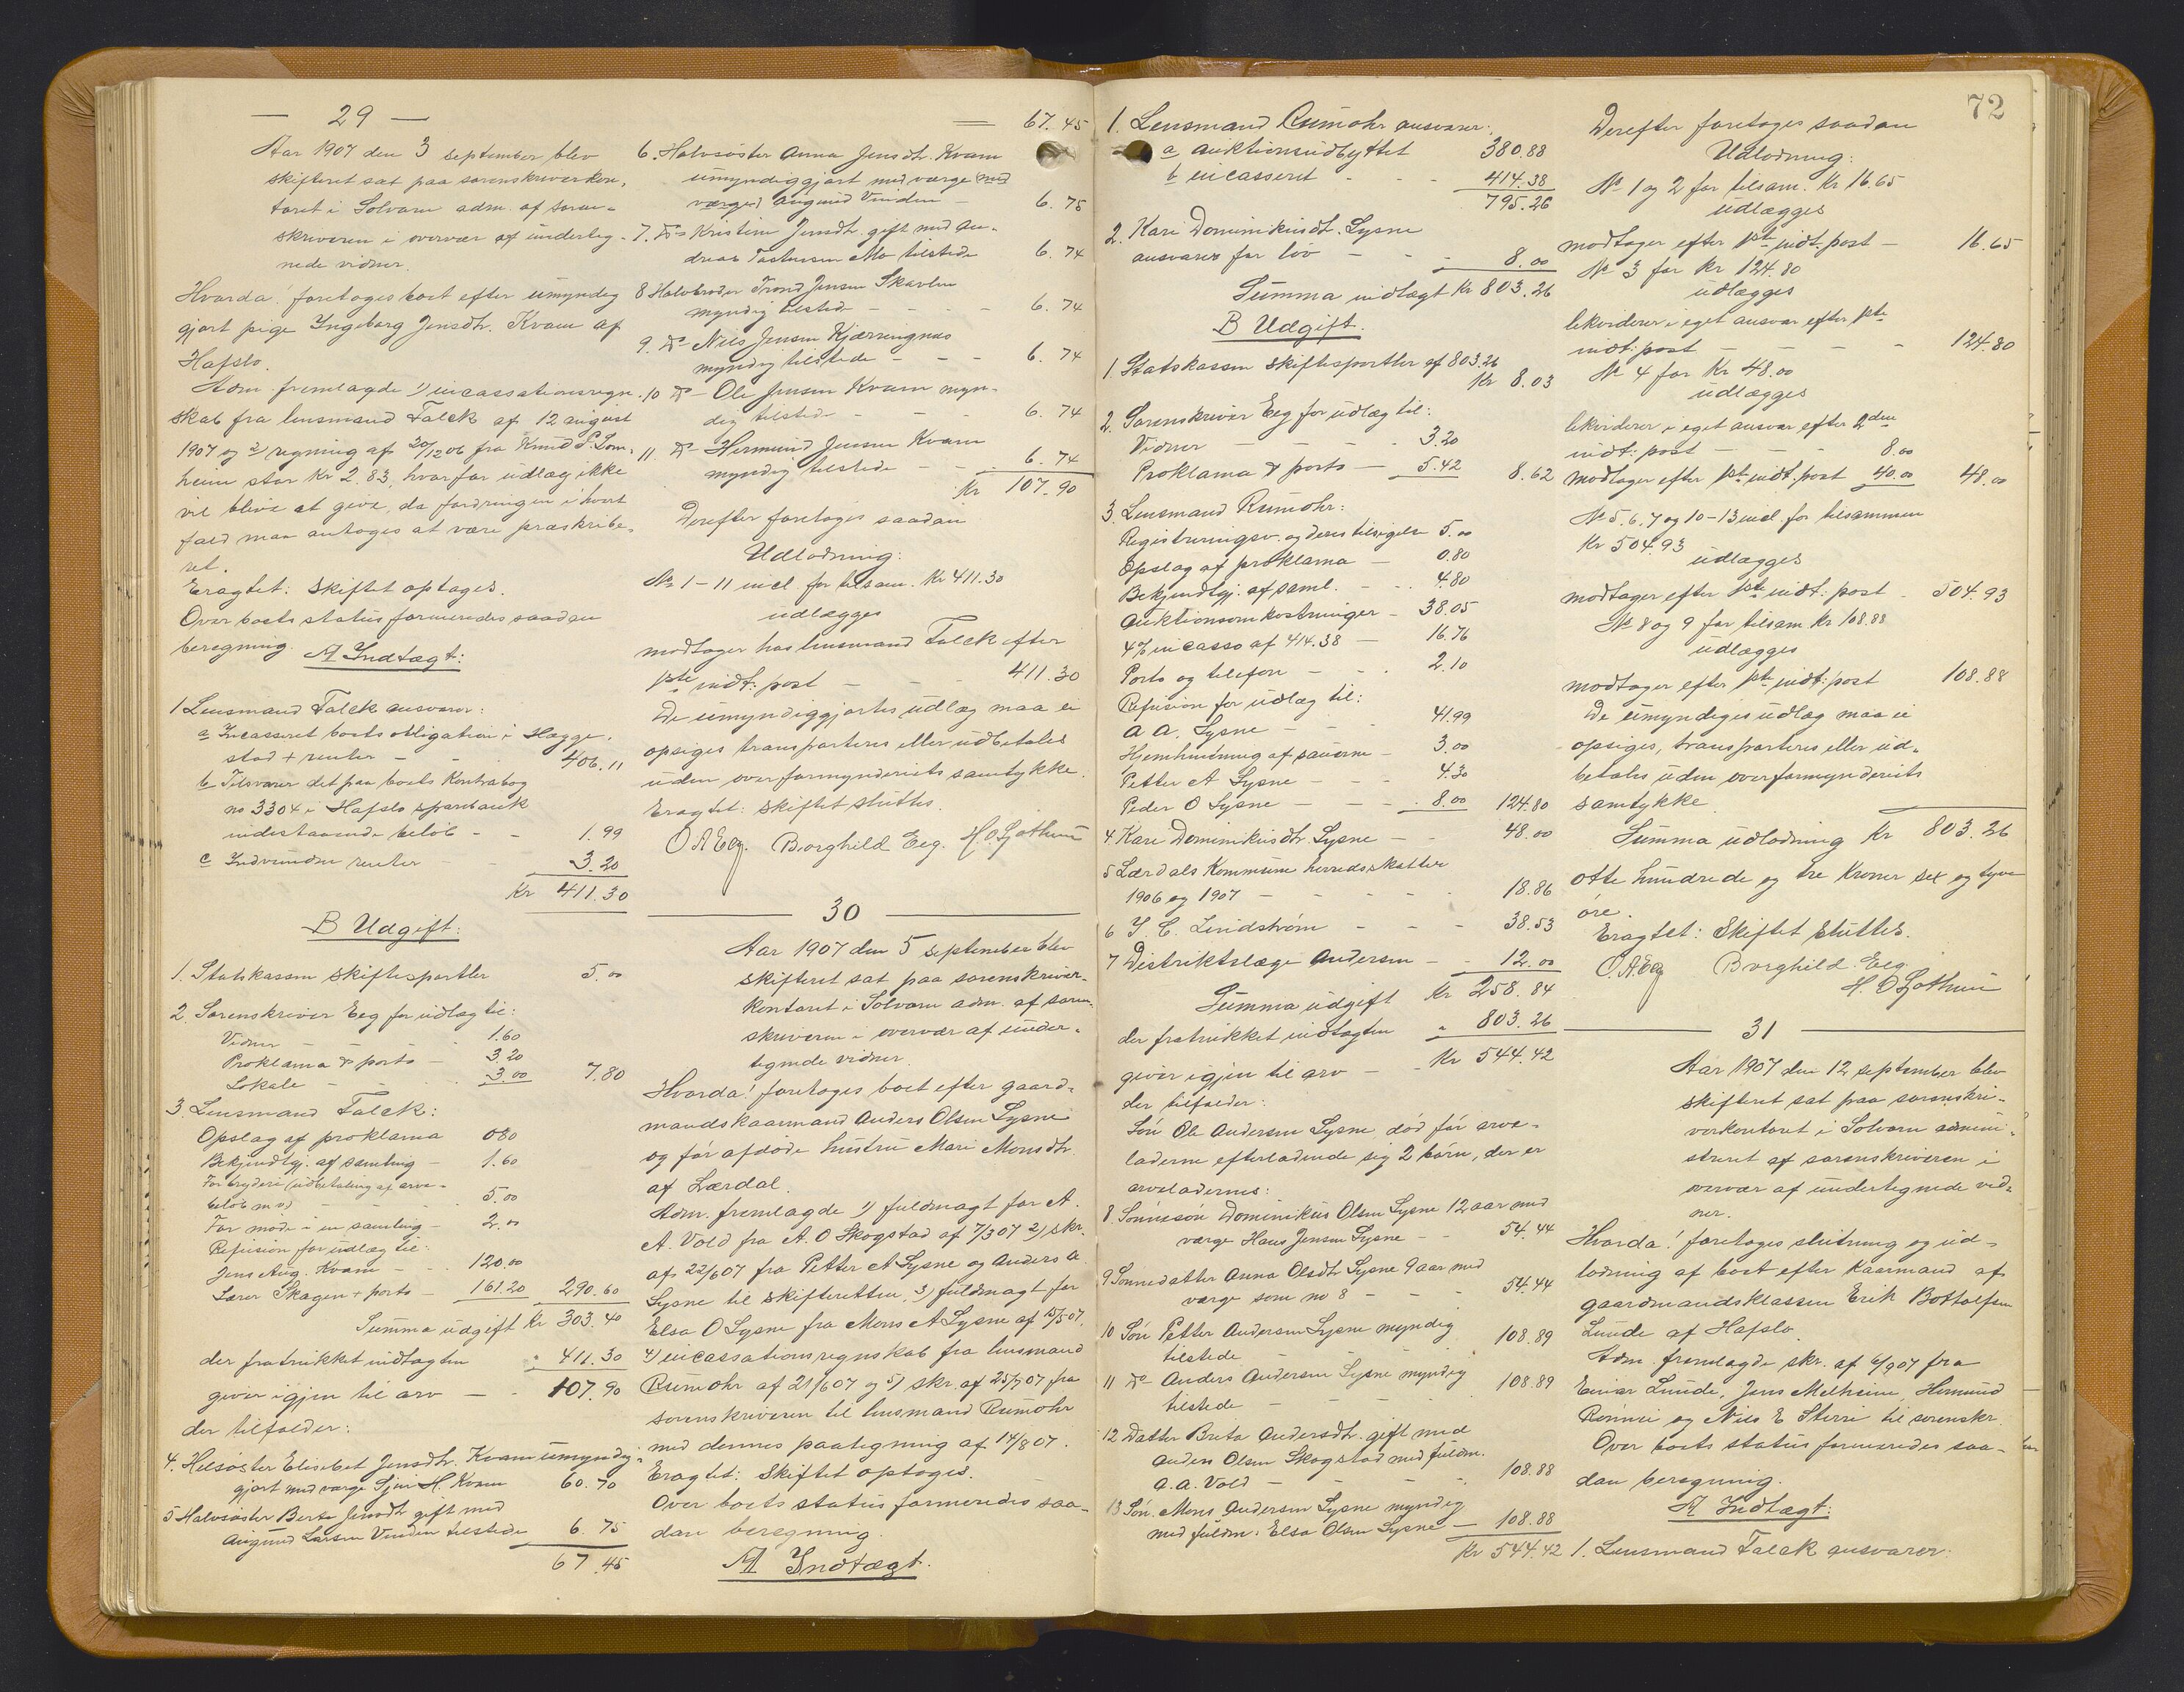 — 29 —
Aar 1907 den 3 september blev
skifteret sat paa sorenskriverkon-
toret i Solvorn adm. af soren-
skriveren i overvær af underteg-
nede vidner.
Hvorda! foretoges boet efter umyndig
gjort pige Ingeborg Jensdtr. Kvam af
Hafslo.
Adm. fremlagde 1) incassationsregn-
skab fra lensmand Falck af 12 august
1907 og 2) regning af 20/12 06 fra Knud S. Lom-
heim stor Kr 2.83, hvorfor udlæg ikke
vil blive at give, da fordringen i hvert
fald maa antages at være præskribe-
ret.
Eragtet: Skiftet optages.
Over boets status formeredes saadan
beregning.
A Indtægt:
1 Lensmand Falck ansvarer:
a Incasseret boets obligation i Hægge-
stad + renter — 406.11
b Tilsvarer det paa boets Kontrabog
no 3304 i Hafslo sparebank
indestaaende beløb - - 1.99
c Indvundne renter 3.20
Kr 411.30
B Udgift:
1. Statskassen skiftesportler 5.00
2. Sorenskriver Eeg for udlæg til:
Vidner — 1.60
Proklama & porto — 3.20
Lokale — 3.00 7.80
3. Lensmand Falck:
Opslag af proklama 0.80
Bekjendtgj. af samling — 1.60
For bryderi (udbetaling af arve-
beløb m.v.) 5.00
For møde i en samling — 2.00
Refusion for udlæg til:
Jens Aug. Kvam — 120.00
Lærer Skagen + porto — 161.20 290.60
Summa udgift Kr 303.40
der fratrukket indtægten " 411.30
giver igjen til arv — - 107.90
der tilfalder:
4. Helsøster Elisebet Jensdtr. Kvam umyndig-
gjort med værge Sjur H. Kvam 60.70
5 Halvsøster Berta Jensdtr gift med
Augund Larsen Vinden tilstede 6.75
67.45
= 67.45
6. Halvsøster Anna Jensdtr. Kvam
umyndiggjort med værge (med
værge) Augund Vinden — 6.75
7. Do Kristine Jensdtr. gift med An-
dreas Tostensen Mo tilstede 6.74
8 Halvbroder Trond Jensen Skarlen
myndig tilstede - - - 6.74
9. Do Nils Jensen Kjærringnes
myndig tilstede - - - 6.74
10 Do — Ole Jensen Kvam myn-
dig tilstede - - 6.74
11. Do Hermund Jensen Kvam
myndig tilstede - - 6.74
Kr 107.90
Derefter foretoges saadan
Udlodning:
No 1 – 11 incl for tilsam. Kr 411.30
udlægges
modtager hos lensmand Falck efter
1ste indt: post — - 411.30
De umyndiggjortes udlæg maa ei
opsiges transporteres eller udbetales
uden overformynderiets samtykke.
Eragtet: Skiftet sluttes.
O A Eeg. Borghild Eeg. H. O Gjøthun
— 30 —
Aar 1907 den 5 september blev
skifteret sat paa sorenskriver-
kontoret i Solvorn adm. af soren-
skriveren i overvær af under-
tegnede vidner.
Hvorda! foretoges boet efter gaard-
mandskaarmand Anders Olsen Lysne
og før afdøde hustru Mari Monsdtr.
af Lærdal.
Adm. fremlagde 1) fuldmagt for A.
A. Vold fra A. O Skogstad af 7/3 07 2) skr.
af 22/6 07 fra Petter A Lysne og Anders A
Lysne til skifteretten, 3) fuldmagt for
Elsa O Lysne fra Mons A Lysne af 15/5 07,
4) incassationsregnskab fra lensmand
Rumohr af 21/6 07 og 5) skr. af 25/7 07 fra
sorenskriveren til lensmand Rumohr
med dennes paategning af 14/8 07.
Eragtet: Skiftet optoges.
Over boets status formeredes saa-
dan beregning.
A Indtægt.
1. Lensmand Rumohr ansvarer:
a auktionsudbyttet 380.88
b incasseret - - - 414.38
795.26
2. Kari Dominikusdtr. Lysne
ansvarer for løv - - - 8.00
Summa indtægt Kr 803.26
B Udgift.
1. Statskassen skiftesportler af 803.26
Kr 8.03
2. Sorenskriver Eeg for udlæg til:
Vidner - - - 3.20
Proklama & porto — 5.42 8.62
3. Lensmand Rumohr:
Registreringsv. og deres tilsigelse 5.00
Opslag af proklama — 0.80
Bekjendtgj. af saml. - - 4.80
Auktionsomkostninger - 38.05
4% incasso af 414.38 — 16.76
Porto og telefon — - 2.10
Refusion for udlæg til:
A A. Lysne - - 41.99
Hjemhentning af sauerne - 3.00
Petter A Lysne - - - 4.30
Peder O Lysne — - - 8.00 124.80
4. Kari Dominikusdtr Lysne — - 48.00
5 Lærdals Kommune herredsskatter
1906 og 1907 — - - - 18.86
6 J. C. Lindstrøm - - - 38.53
7 Distriktslæge Andersen - - 12.00
Summa udgift Kr 258.84
der fratrukket indtægten " 803.26
giver igjen til arv — - Kr 544.42
der tilfalder:
Søn Ole Andersen Lysne død før arve-
laderne efterladende sig 2 børn, der er
arveladernes:
8. Sønnesøn Dominikus Olsen Lysne 12 aar med
værge Hans Jensen Lysne - - 54.44
9 Sønnedatter Anna Olsdtr Lysne 9 aar med
værge som no 8 - - - 54.44
10 Søn Petter Andersen Lysne myndig
tilstede 108.89
11 Do Anders Andersen Lysne myndig
tilstede — - 108.89
12 Datter Brita Andersdtr. gift med
Anders Olsen Skogstad med fuldm.
A. A. Vold — - 108.88
13 Søn. Mons Andersen Lysne myndig
med fuldm: Elsa Olsen Lysne — 108.88
Kr 544.42
72
Derefter foretoges saadan
Udlodning:
No 1 og 2 for tilsam. Kr 16.65
udlægges
modtager efter 1ste indt. post — 16.65
No 3 for Kr 124.80
udlægges
likviderer i eget ansvar efter 1ste
indt: post — - - - 124.80
No 4 for Kr 48.00
udlægges
likviderer i eget ansvar efter 2den
indt: post — - - 8.00
modtager efter 1ste indt. post 40.00 48.00
No 5. 6. 7 og 10–13 incl. for tilsammen
Kr 504.93
udlægges
modtager efter 1ste indt: post - 504.93
No 8 og 9 for tilsam Kr 108.88
udlægges
modtager efter 1ste indt: post 108.88
De umyndiges udlæg maa ei
opsiges, transporteres eller ud-
betales uden overformynderiets
samtykke.
Summa udlodning Kr 803.26
Otte hundrede og tre Kroner sex og tyve
øre.
Eragtet: Skiftet sluttes.
O. A. Eeg Borghild Eeg.
H. O Gjøthun
— 31 —
Aar 1907 den 12 september blev
skifteret sat paa sorenskri-
verkontoret i Solvorn admini-
streret af sorenskriveren i
overvær af undertegnede vid-
ner.
Hvorda! foretoges slutning og ud-
lodning af boet efter kaarmand af
gaardmandsklassen Erik Bottolfsen
Lunde af Hafslo.
Adm. fremlagde skr. af 6/9 07 fra
Einar Lunde, Jens Melheim, Hermund
Rønnei og Nils E Sterri til sorenskr.
Over boets status formeredes saa-
dan beregning.
A Indtægt:
1. Lensmand Falck ansvarer: